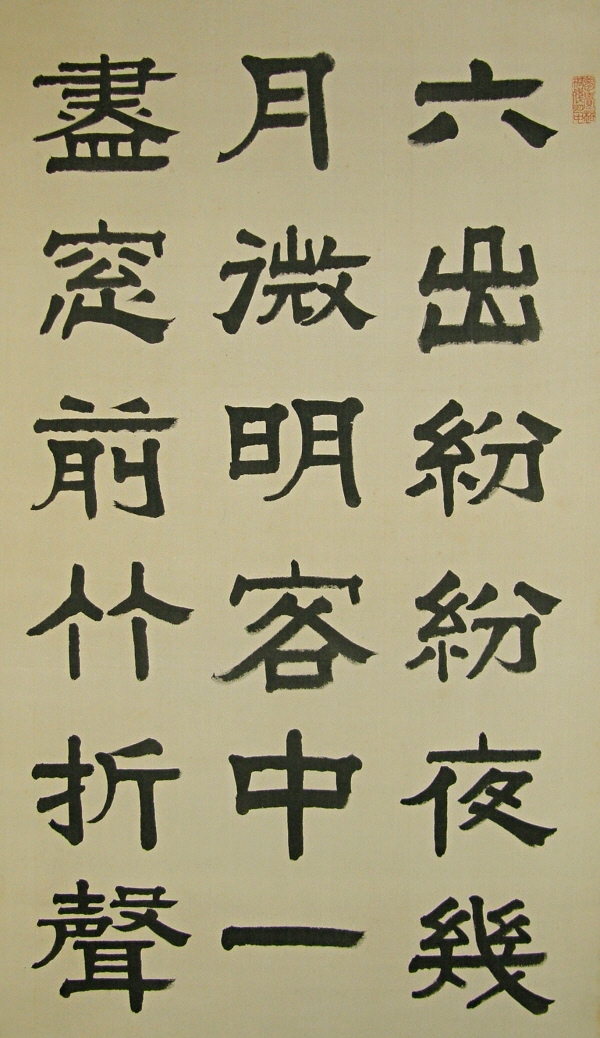 六出紛紛夜幾
月微明客中一
盡窓前竹折聲